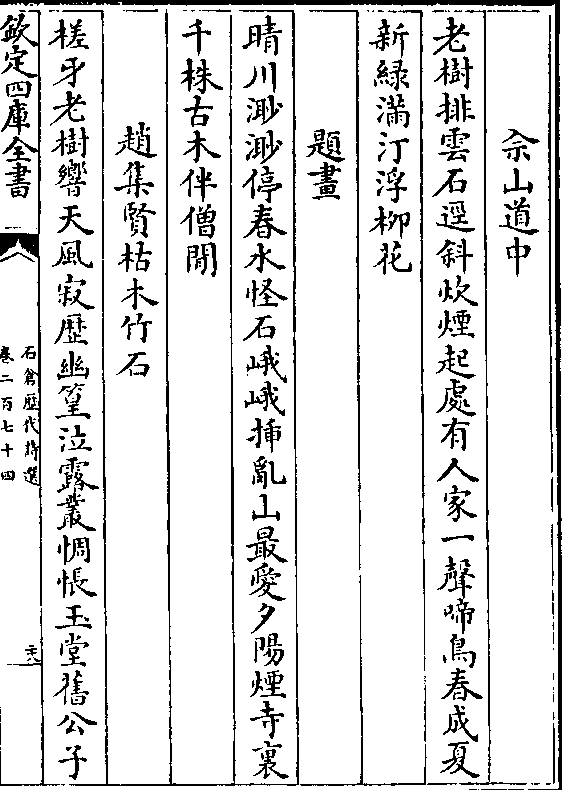 佘山道中
老樹排雲石逕斜炊煙起處有人家一聲啼鳥春成夏
新緑滿汀浮柳花
題畫
晴川渺渺停春水怪石峨峨挿亂山最愛夕陽煙寺裏
千株古木伴僧閒
趙集賢枯木竹石
槎牙老樹響天風寂歴幽篁泣露叢惆悵玉堂舊公子
欽定四庫全書
石倉歴代詩選
卷二百七十四